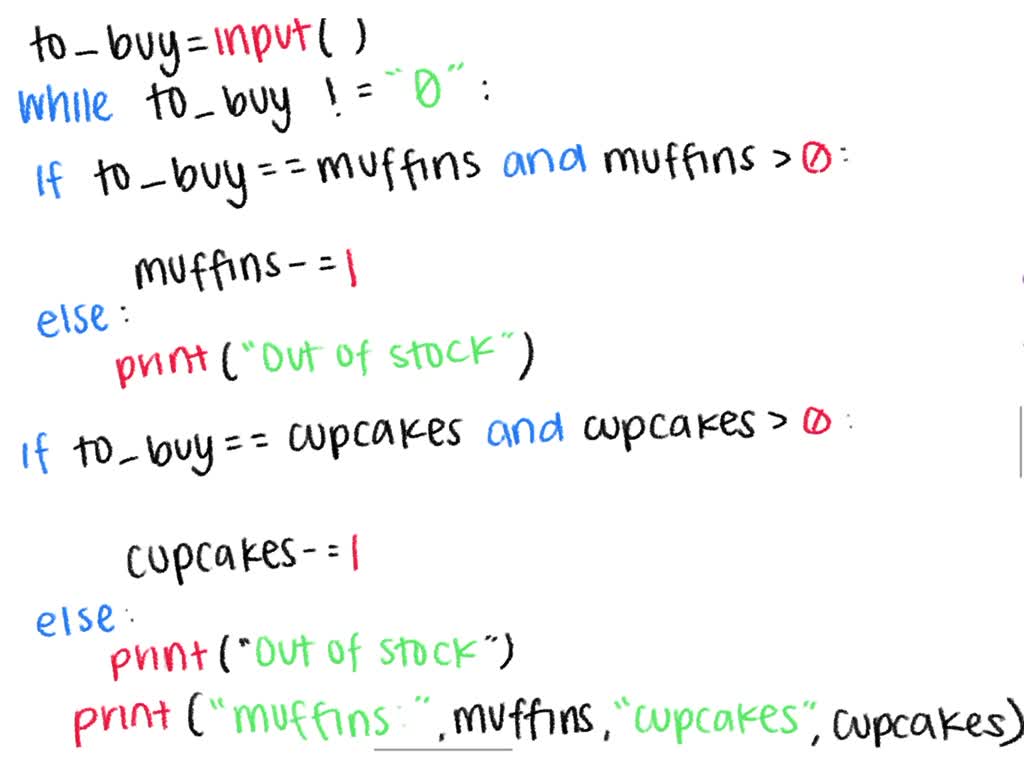 to_buy=input( )
while to_buy != "0":
if to_buy==muffins and muffins > 0:
muffins-=1
else:
print("Out of stock")
if to_buy== cupcakes and cupcakes > 0:
cupcakes-=1
else:
print("Out of stock")
print("muffins:",muffins,"cupcakes",cupcakes)